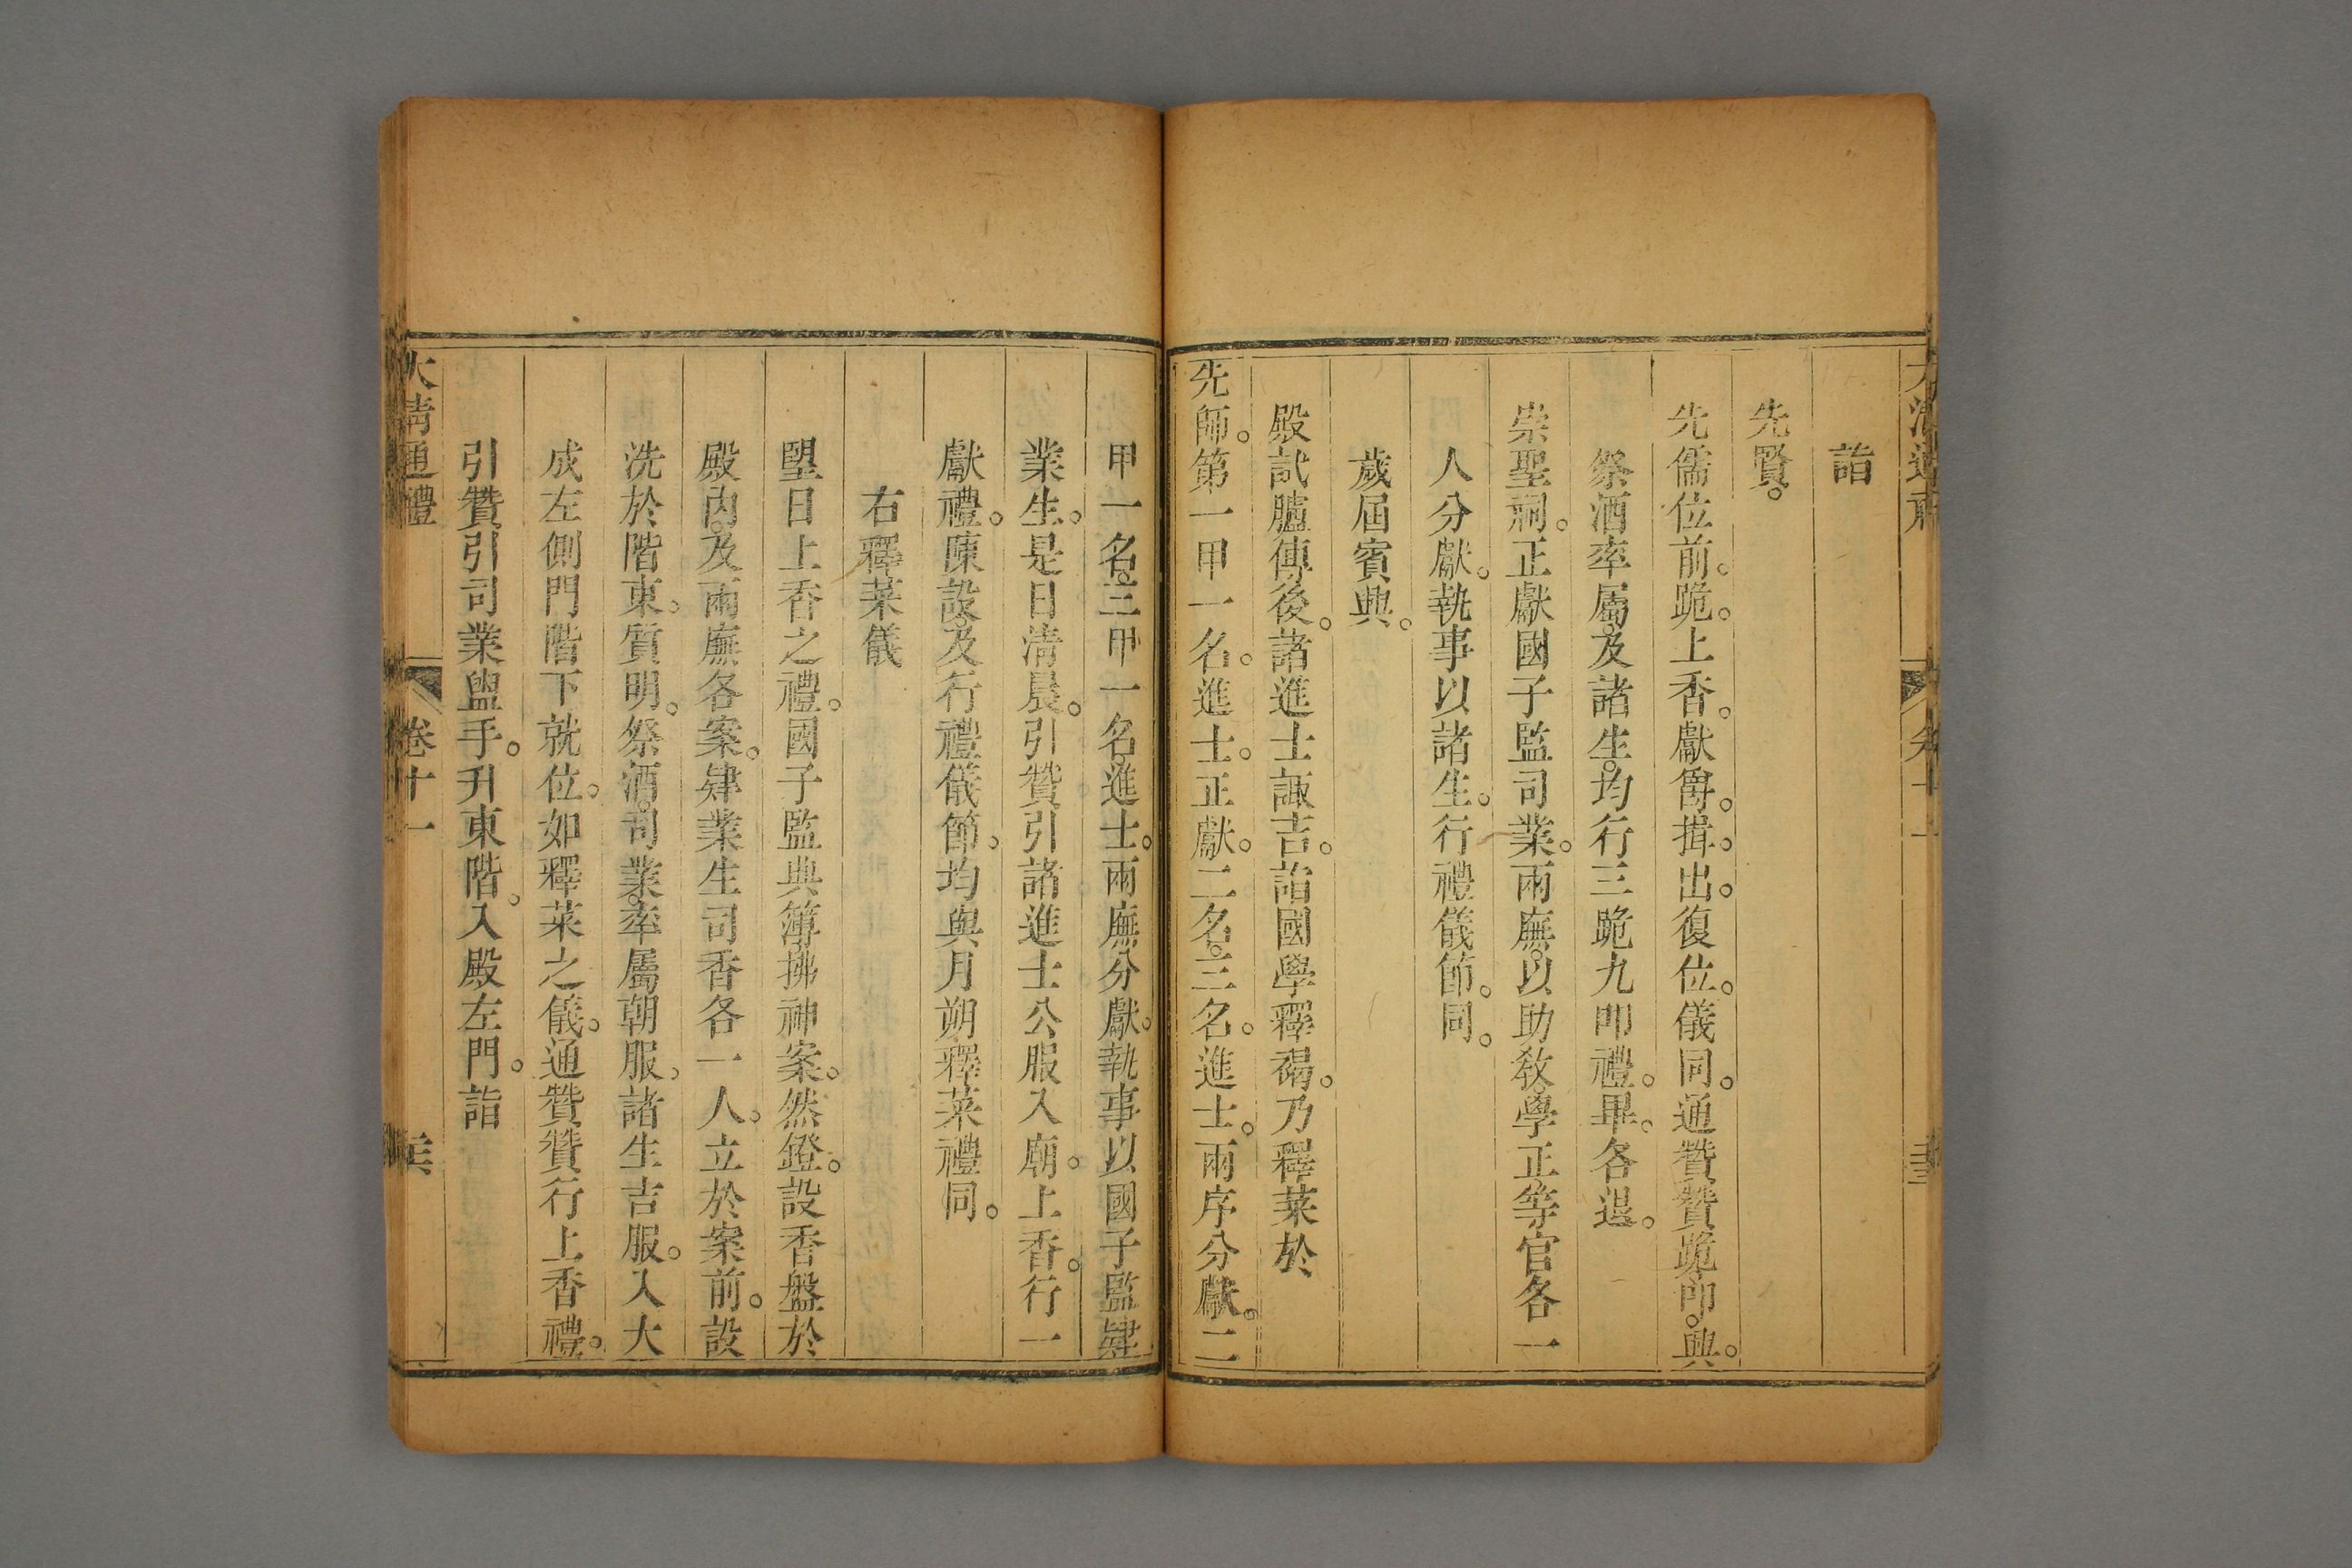 詣
先賢。
先儒位前。跪。上香。獻爵。揖。出。復位。儀同。通贊贊跪。叩。興。
祭酒率屬。及諸生。均行三跪九叩禮。畢。各退。
崇聖祠。正獻國子監司業。兩廡。以助教。學正等官各一
人分獻。執事以諸生。行禮儀節。同。
歲屆賓興。
殿試臚傳後。諸進士諏吉。詣國學釋褐。乃釋菜於
先師。第一甲一名。進士。正獻。二名。三名。進士。兩序分獻。二
甲一名。三甲一名。進士。兩廡分獻。執事以國子監肄
業生。是日清晨。引贊引諸進士公服入廟。上香。行一
獻禮。陳設。及行禮儀節。均與月朔釋菜禮同。
右釋菜儀
朢日上香之禮。國子監典簿拂神案。然鐙。設香盤於
殿內。及兩廡各案。肄業生司香各一人。立於案前。設
洗於階東。質明。祭酒。司業。率屬朝服。諸生吉服。入大
成左側門階下就位。如釋菜之儀。通贊贊行上香禮。
引贊引司業盥手。升東階。入殿左門。詣
大清通禮 卷十一